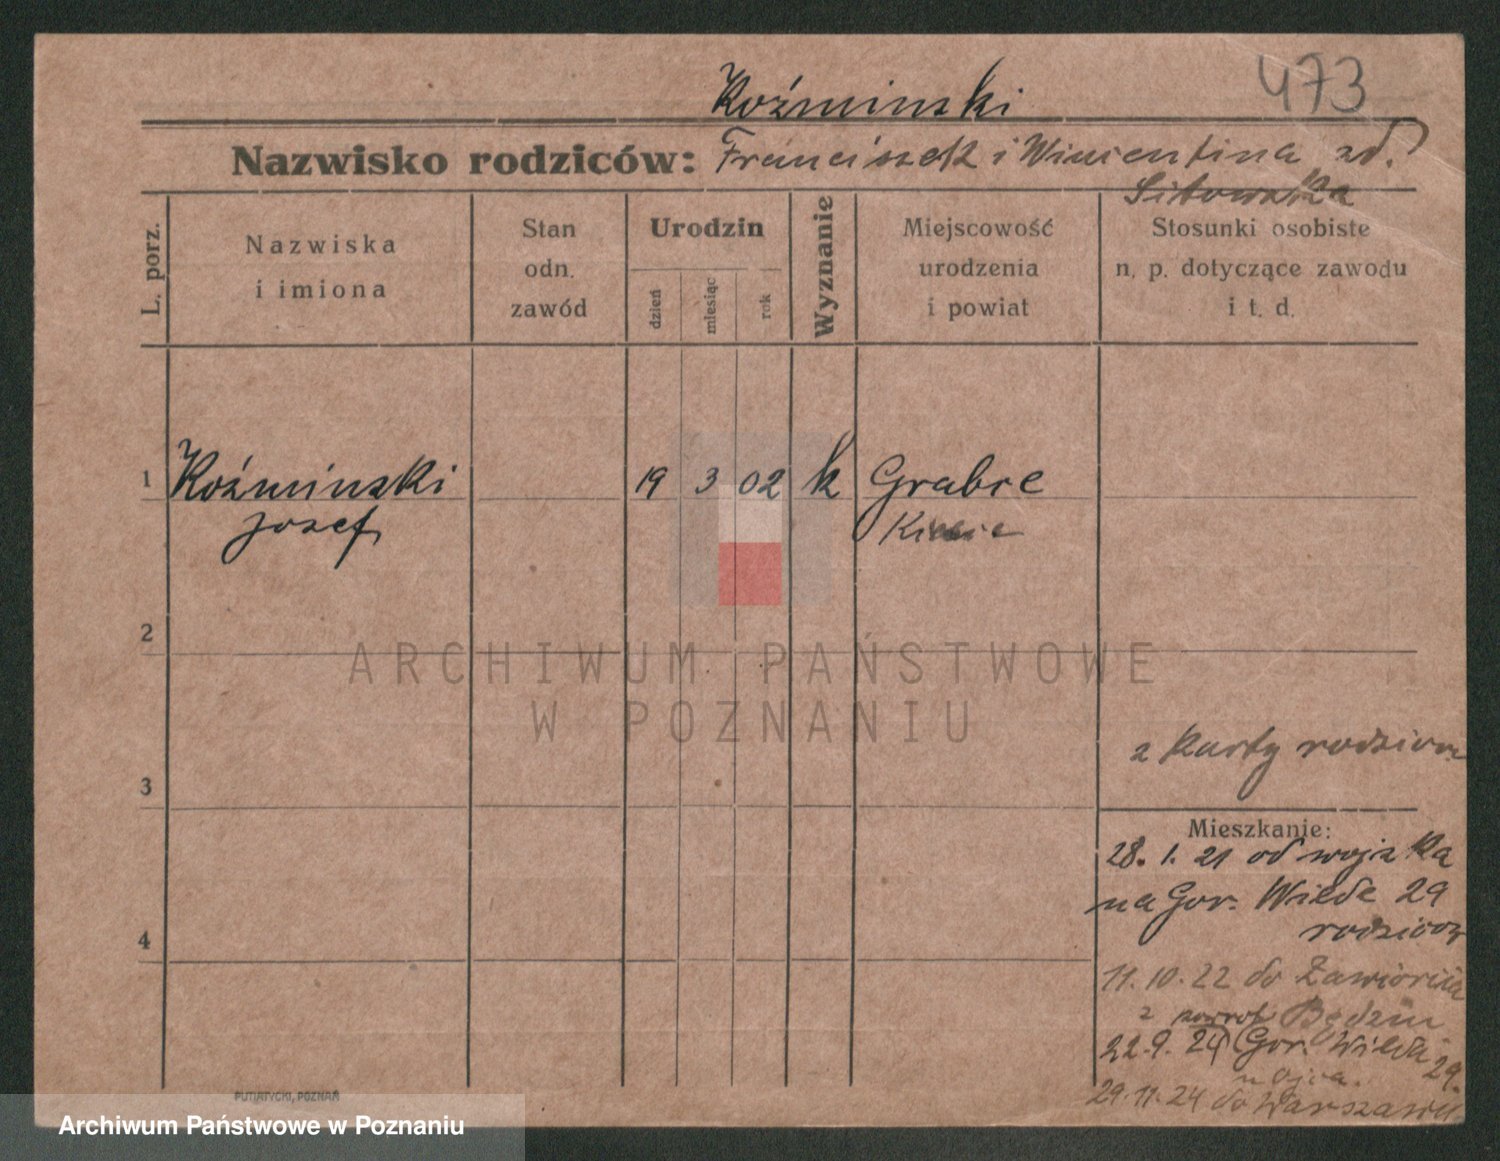 473
Koźminski
Nazwisko rodziców: Franciszek i Wincentina zd.
Sitowska
L. porz.
Nazwiska
i imiona
Stan
odn.
zawód
Urodzin
dzień
miesiąc
rok
Wyznanie
Miejscowość
urodzenia
i powiat
Stosunki osobiste
n. p. dotyczące zawodu
i t. d.
1 Koźminski 19 3 02 k Grabre
Jozef
2
ARCHIWUM PAŃSTWOWE
W POZNANIU
z Karty rodziców
3
Mieszkanie:
28. 1. 21 od wojska
na Gor. Wilde 29
rodziców
4
11. 10. 22 do Zawiercia
z powrot Będzin
22. 9. 24 Gor. Wilda 29.
u ojca.
29. 11. 24 do Warszawy
PUTIATYCKI, POZNAŃ
Archiwum Państwowe w Poznaniu